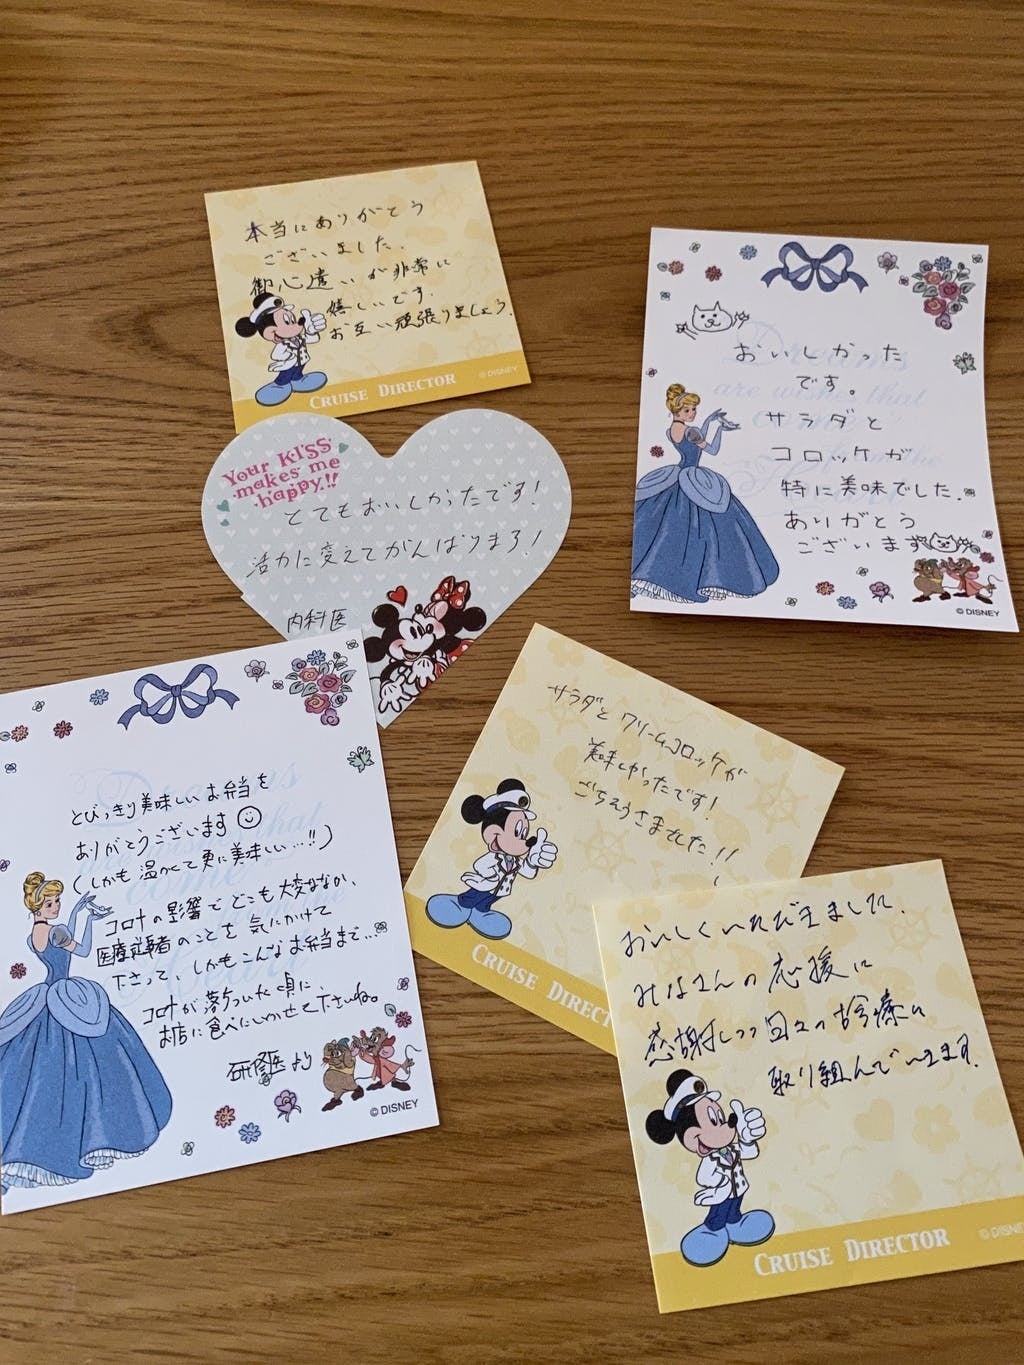 本当にありがとう
ございました.
御心遣いが非常に
嬉しいです.
お互い頑張りましょう.
CRUISE DIRECTOR
©DISNEY
おいしかった
です。
サラダと
コロッケが
特に美味でした.
ありがとう
ございます
© DISNEY
Your KISS
makes me
happy!!
とてもおいしかったです!
活力に変えてがんばりまろ!
内科医
とびっきり美味しいお弁当を
ありがとうございます
(しかも温かくて更に美味しい…!!)
コロナの影響でどこも大変ななか、
医療従事者のことを気にかけて
下さって、しかもこんなお弁当まで…
コロナが落ちついた頃に、
お店に食べにいかせて下さいね。
研修医より
© DISNEY
サラダとクリームコロッケが
美味しかったです!
ごちそうさまでした!!
CRUISE DIRECTO
おいしくいただきました.
みなさんの応援に
感謝しつつ日々の診療に
取り組んでいます.
CRUISE DIRECTOR
©DISNE